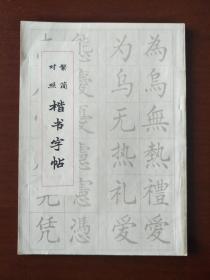 繁简
对照
楷书字帖
為烏無熱禮愛
为乌无热礼爱
態憂憲憑
凭